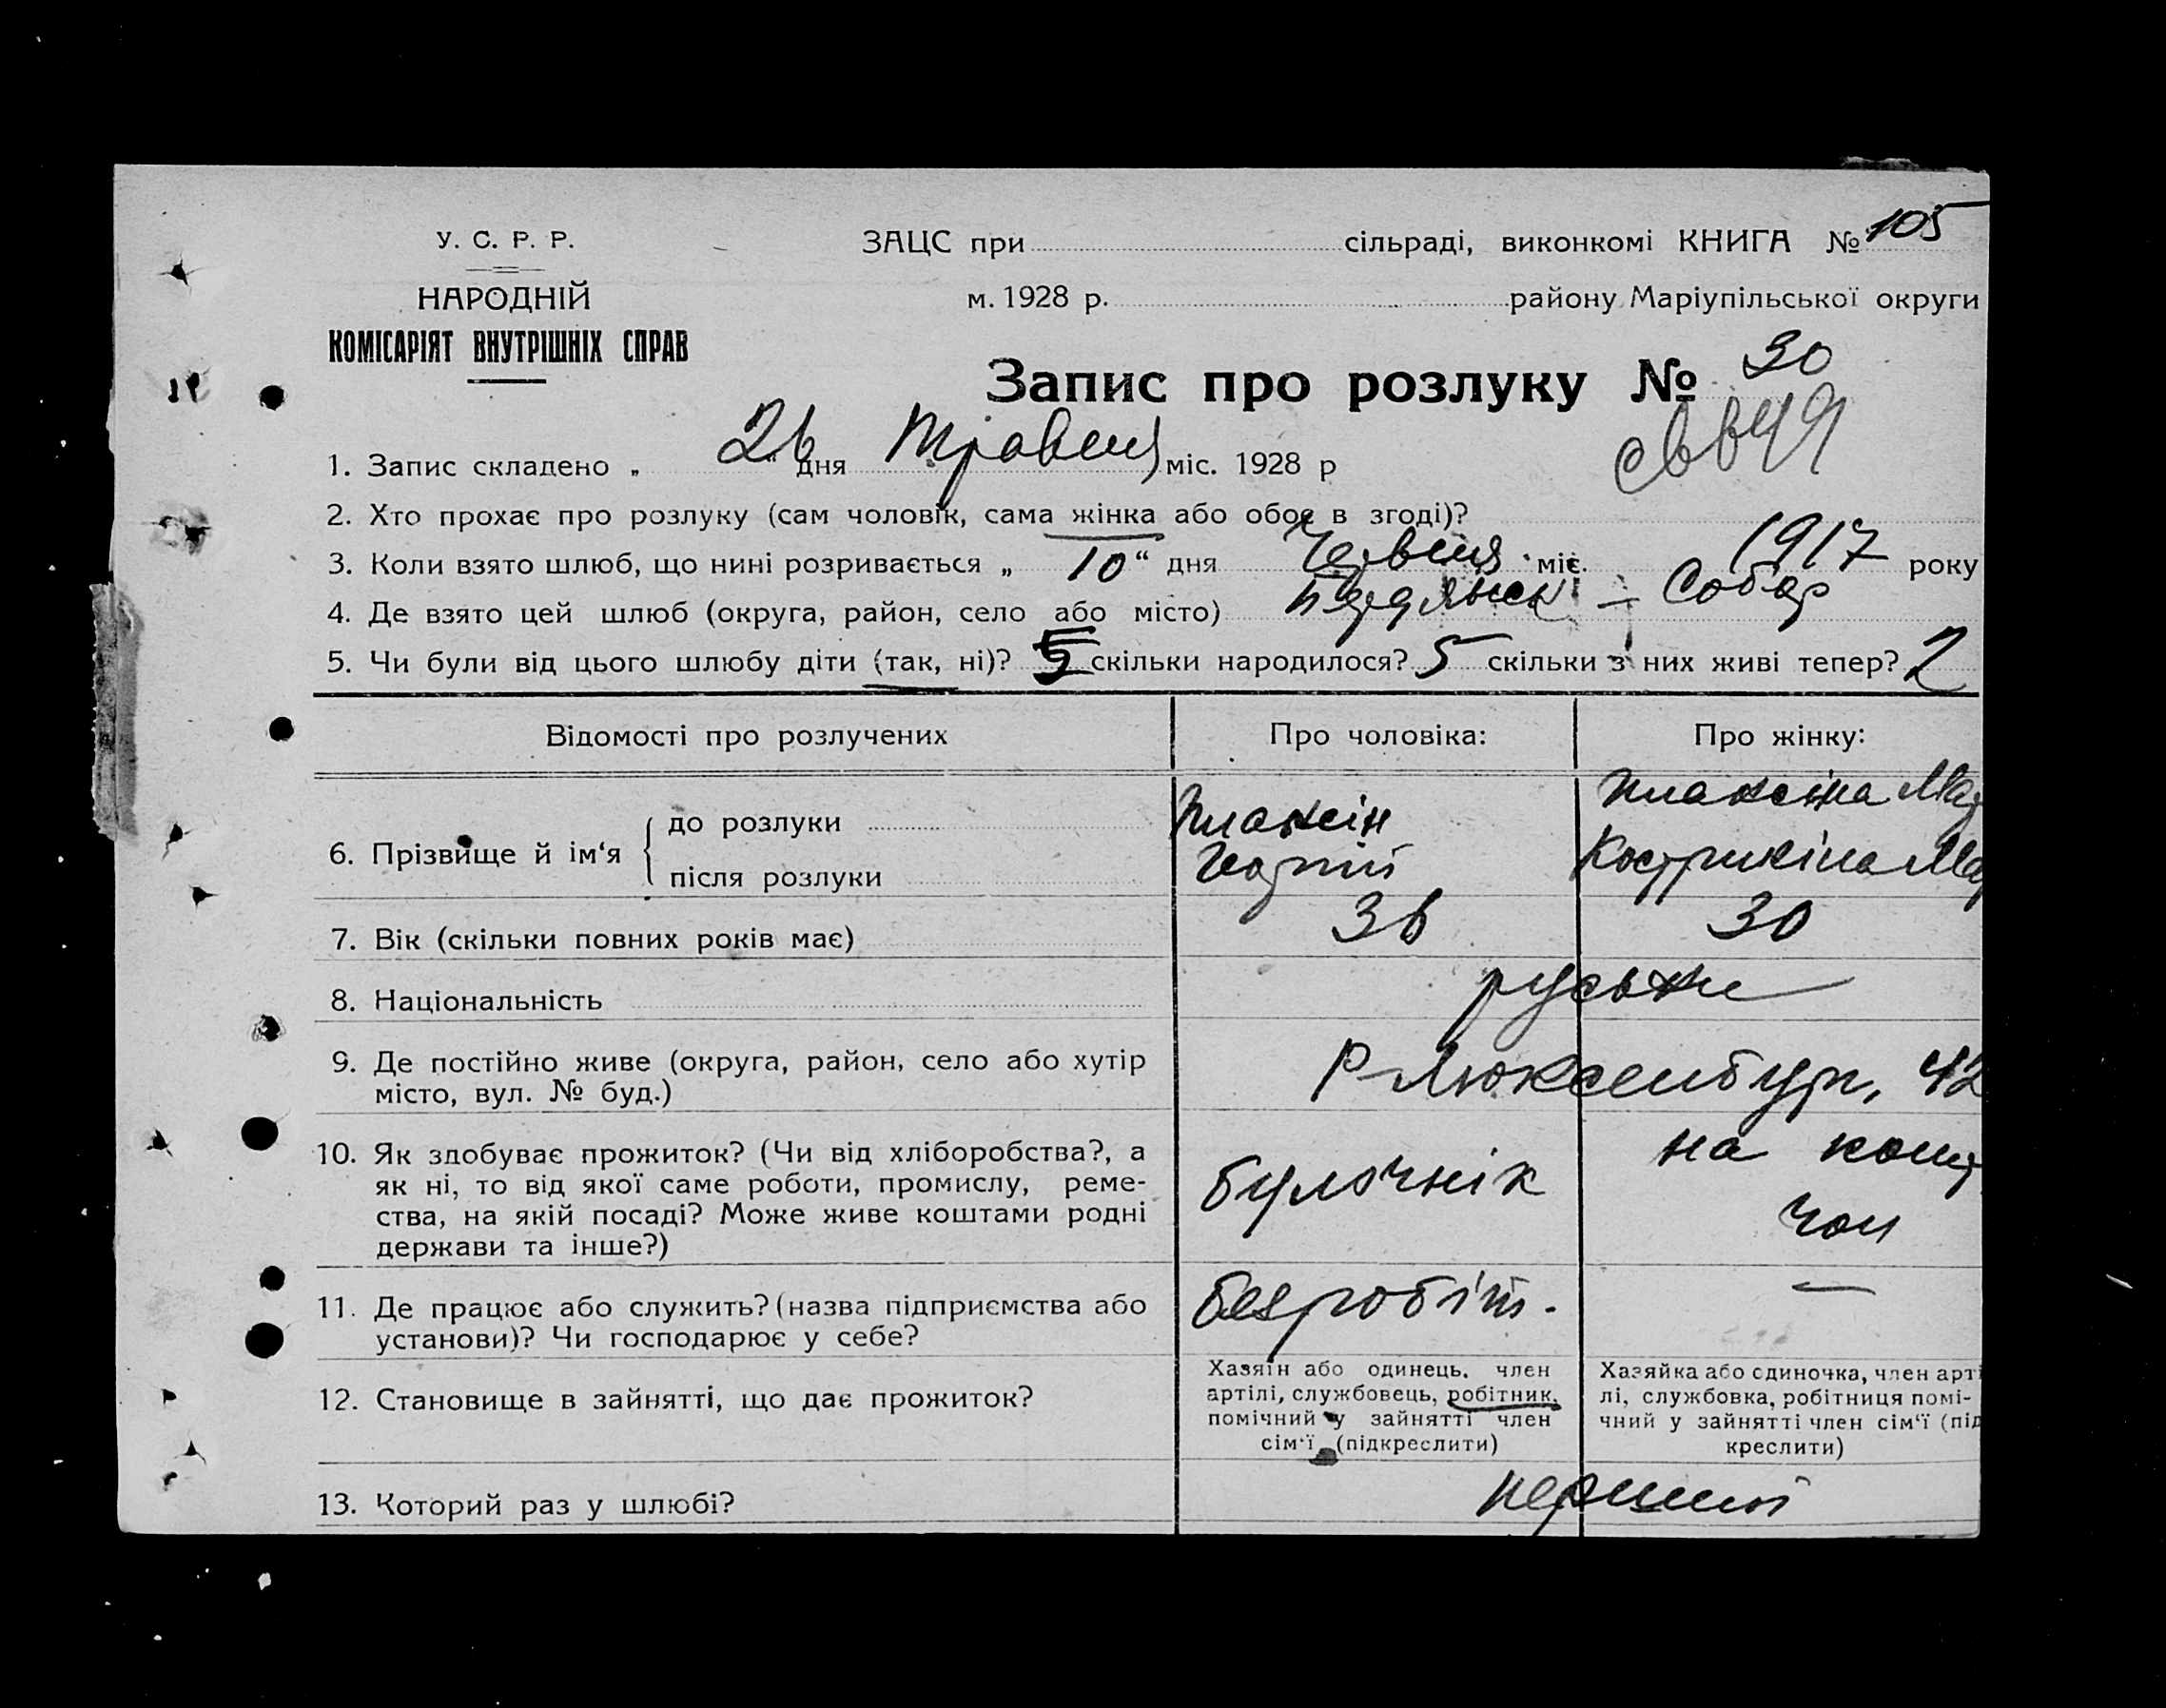 У. С. Р. Р.
НАРОДНІЙ
КОМІСАРІЯТ ВНУТРІШНІХ СПРАВ
ЗАЦС при сільраді, виконкомі КНИГА № 105
м. 1928 р. району Маріупільської округи
Запис про розлуку № 30
1. Запис складено „ 26 “ дня Травня міс. 1928 р
2. Хто прохає про розлуку (сам чоловік, сама жінка або обоє в згоді)?
3. Коли взято шлюб, що нині розривається „ 10 “ дня Червня міс. 1917 року
4. Де взято цей шлюб (округа, район, село або місто) Бердянськ - Собор
5. Чи були від цього шлюбу діти (так, ні)? 5 скільки народилося? 5 скільки з них живі тепер? 2
Відомості про розлучених
Про чоловіка:
Про жінку:
6. Прізвище й ім‘я
до розлуки
після розлуки
Плаксін
Георгій
Плаксіна Мар
Кострикіна Мар
7. Вік (скільки повних років має) 36 30
8. Національність руські
9. Де постійно живе (округа, район, село або хутір
місто, вул. № буд.)
Р-Люксембург, 42
10. Як здобуває прожиток? (Чи від хліборобства?, а
як ні, то від якої саме роботи, промислу, реме-
ства, на якій посаді? Може живе коштами родні
держави та інше?)
булочнік
на кошт
чол
11. Де працює або служить? (назва підприємства або
установи)? Чи господарює у себе?
безробітн. —
12. Становище в зайнятті, що дає прожиток?
Хазяїн або одинець. член
артілі, службовець, робітник,
помічний у зайнятті член
сім‘ї (підкреслити)
Хазяйка або одиночка, член арті
лі, службовка, робітниця помі-
чний у зайнятті член сім‘ї (під
креслити)
13. Которий раз у шлюбі? перший